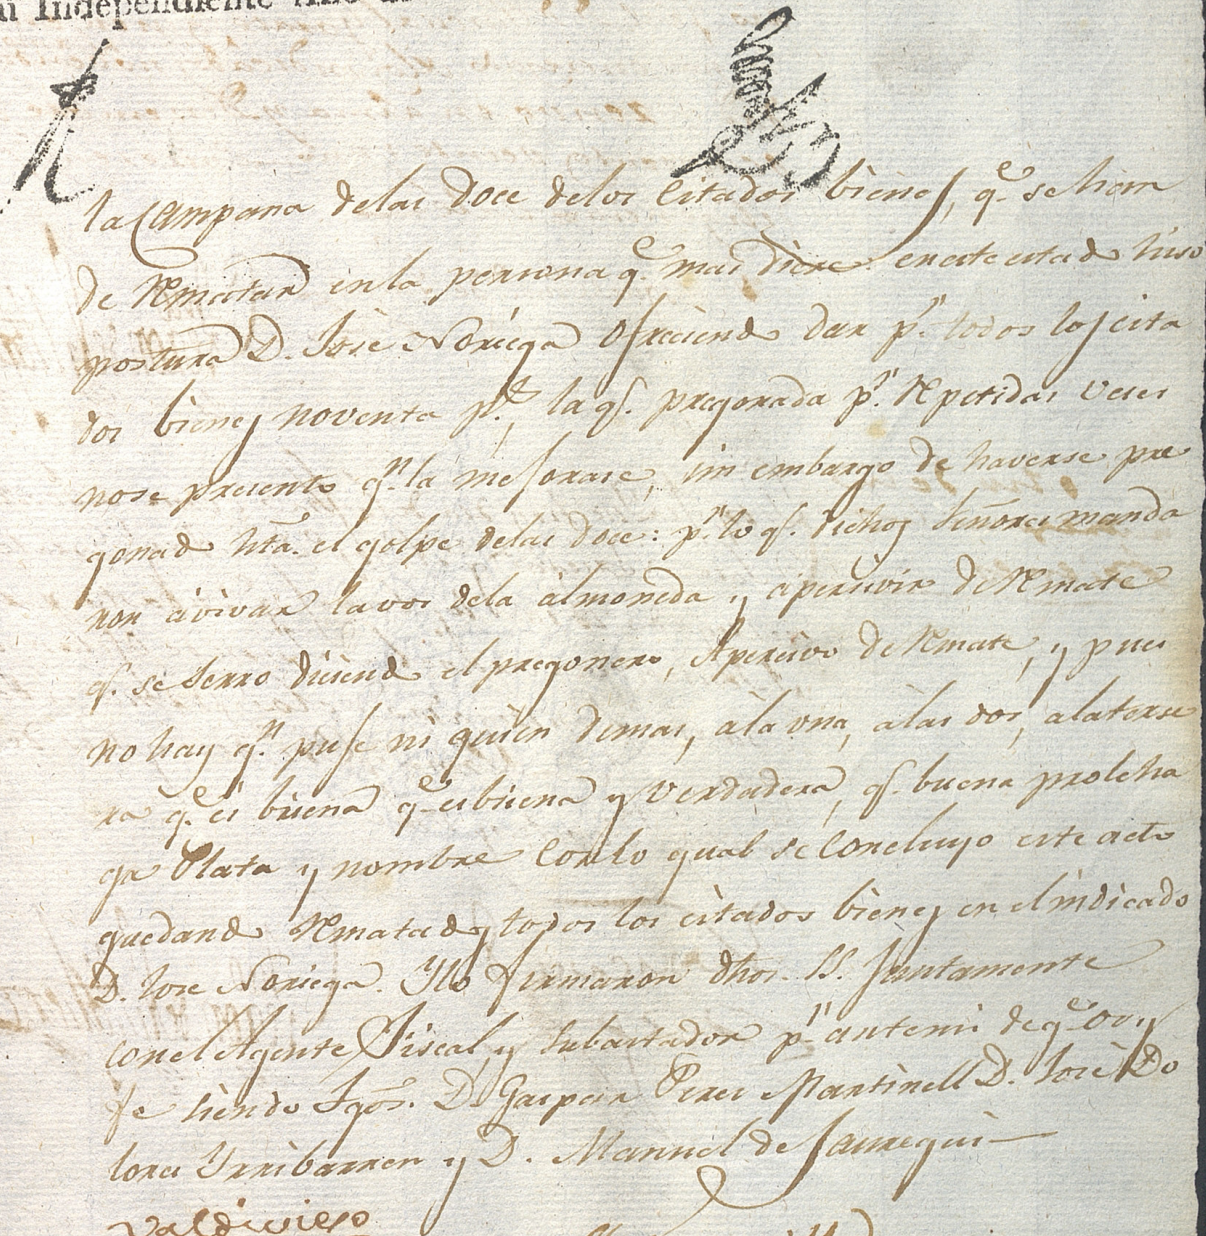 Independiente
la Campana delas doce delos citados bienes, qe. se han
de Rematar en la persona qe. mas diere. en este estado hiso
postura D. José Noriega ofreciendo dar pr. todos los cita
dos bienes noventa ps., la q. pregonada pr. Repetidas veces
no se presento qn. la mejorase, sin embargo de haverse pre
gonado hta. el golpe delas doce: pr. lo q. dichos Señores manda
ron ávivar la vos dela álmoneda, y apersivir de Remate
q. se serro diciendo el pregonero, Apersivo de Remate, y pues
no hay qn. puje ni quien demas, ála una, álas dos, alaterse
ra qe. es buena qe. es buena y verdadera, q. buena pro le ha
ga Plata y nombre con lo qual se concluyo este acto
quedando Rematados todos los citados bienes en el indicado
D. José Noriega. Y lo firmaron dhos. SS. juntamente
con el Agente Fiscal, y Subastador pr. antemi de qe. doy
fe siendo tgos. D. Gaspar Peres Martinell D. José Do
lores Yrribarren y D. Manuel de Jauregui—
Valdivieso